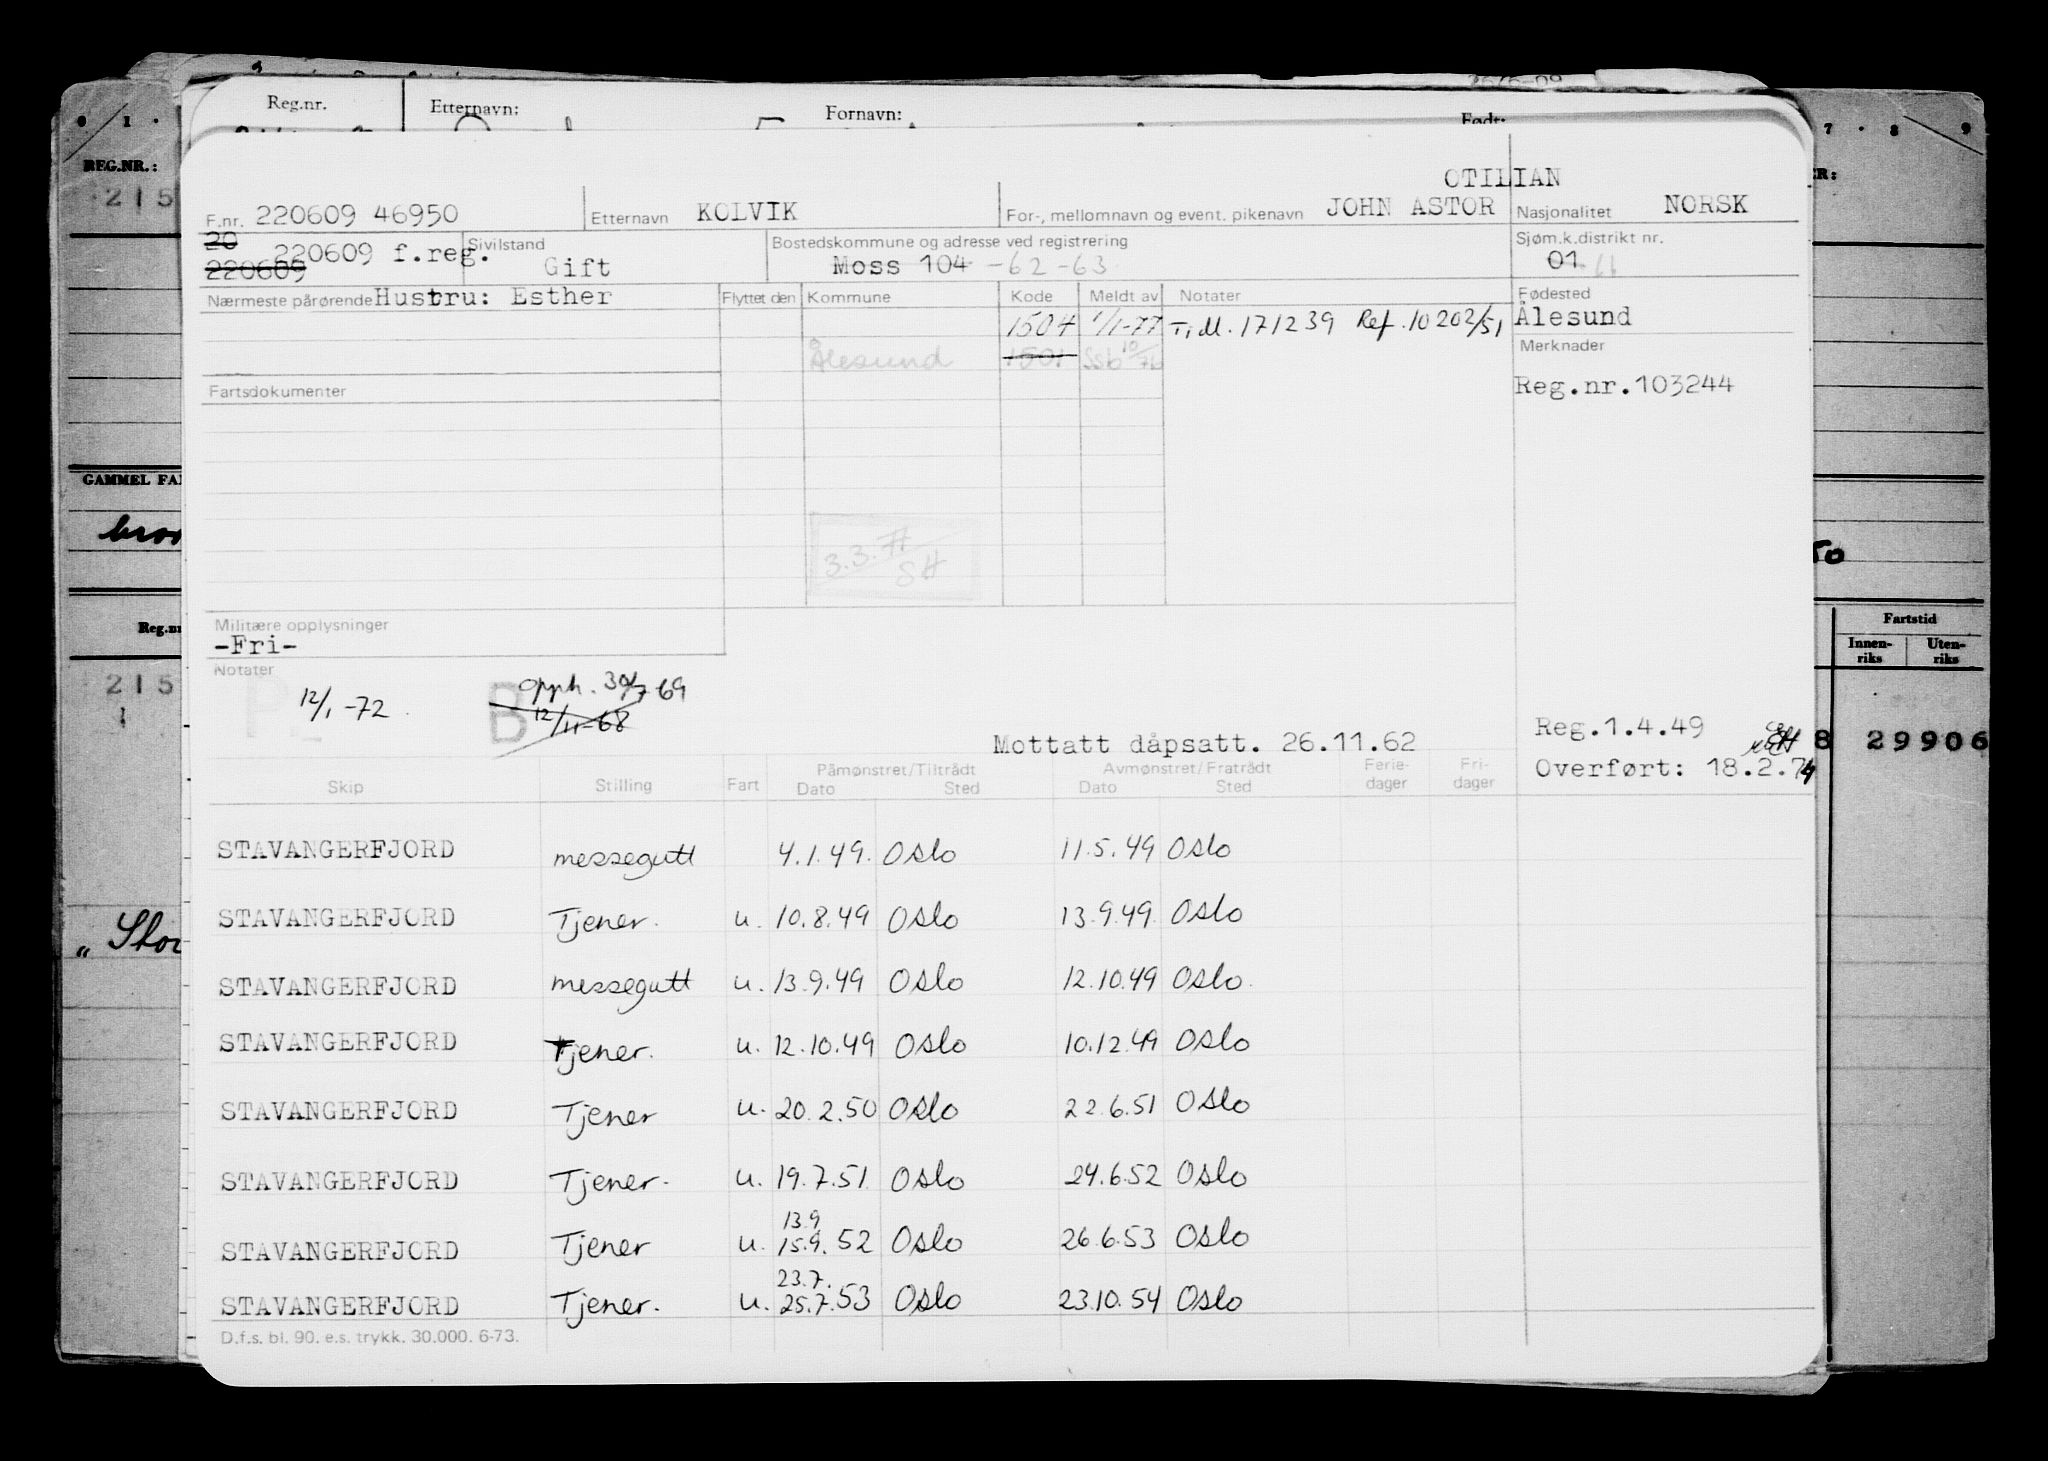 Reg.nr. Etternavn: Fornavn: Født:
REG.NR.:
215
OTILIAN
F.nr. 220609 46950 Etternavn KOLVIK For-, mellomnavn og event. pikenavn JOHN ASTOR Nasjonalitet NORSK
20
220609
220609 f.reg. Sivilstand Gift Bostedskommune og adresse ved registrering Moss 104 -62-63 Sjøm.k.distrikt nr. 01
Nærmeste pårørende Hustru: Esther Flyttet den Kommune Kode Meldt av Notater Fødested
1504 1/1-77 T.M. 171239 Ref. 10202/51 Ålesund
Ålesund 1501 Ssb 10/76 Merknader
Fartsdokumenter Reg.nr.103244
GAMMEL
3.3.77
SH
Militære opplysninger
-Fri-
Notater
Fartstid
Innen-riks Uten-riks
215
12/1-72 B Opph. 30/7-69
12/11-68
Mottatt dåpsatt. 26.11.62
Reg.1.4.49
8 29906
Overført: 18.2.74
Skip Stilling Fart Påmønstret/Tiltrådt Dato Sted Avmønstret/Fratrådt Dato Sted Ferie-dager Fri-dager
STAVANGERFJORD messegutt 4.1.49. Oslo 11.5.49 Oslo
STAVANGERFJORD Tjener. u. 10.8.49 Oslo 13.9.49. Oslo
STAVANGERFJORD messegutt u. 13.9.49 Oslo 12.10.49 Oslo.
STAVANGERFJORD Tjener. u. 12.10.49 Oslo 10.12.49 Oslo
STAVANGERFJORD Tjener u. 20.2.50 Oslo 22.6.51 Oslo
STAVANGERFJORD Tjener. u. 19.7.51 Oslo 24.6.52 Oslo
13.9
STAVANGERFJORD Tjener u. 15.9.52 Oslo 26.6.53 Oslo
23.7.
STAVANGERFJORD Tjener. u. 25.7.53 Oslo 23.10.54 Oslo
D.f.s. bl. 90. e.s. trykk. 30.000. 6-73.